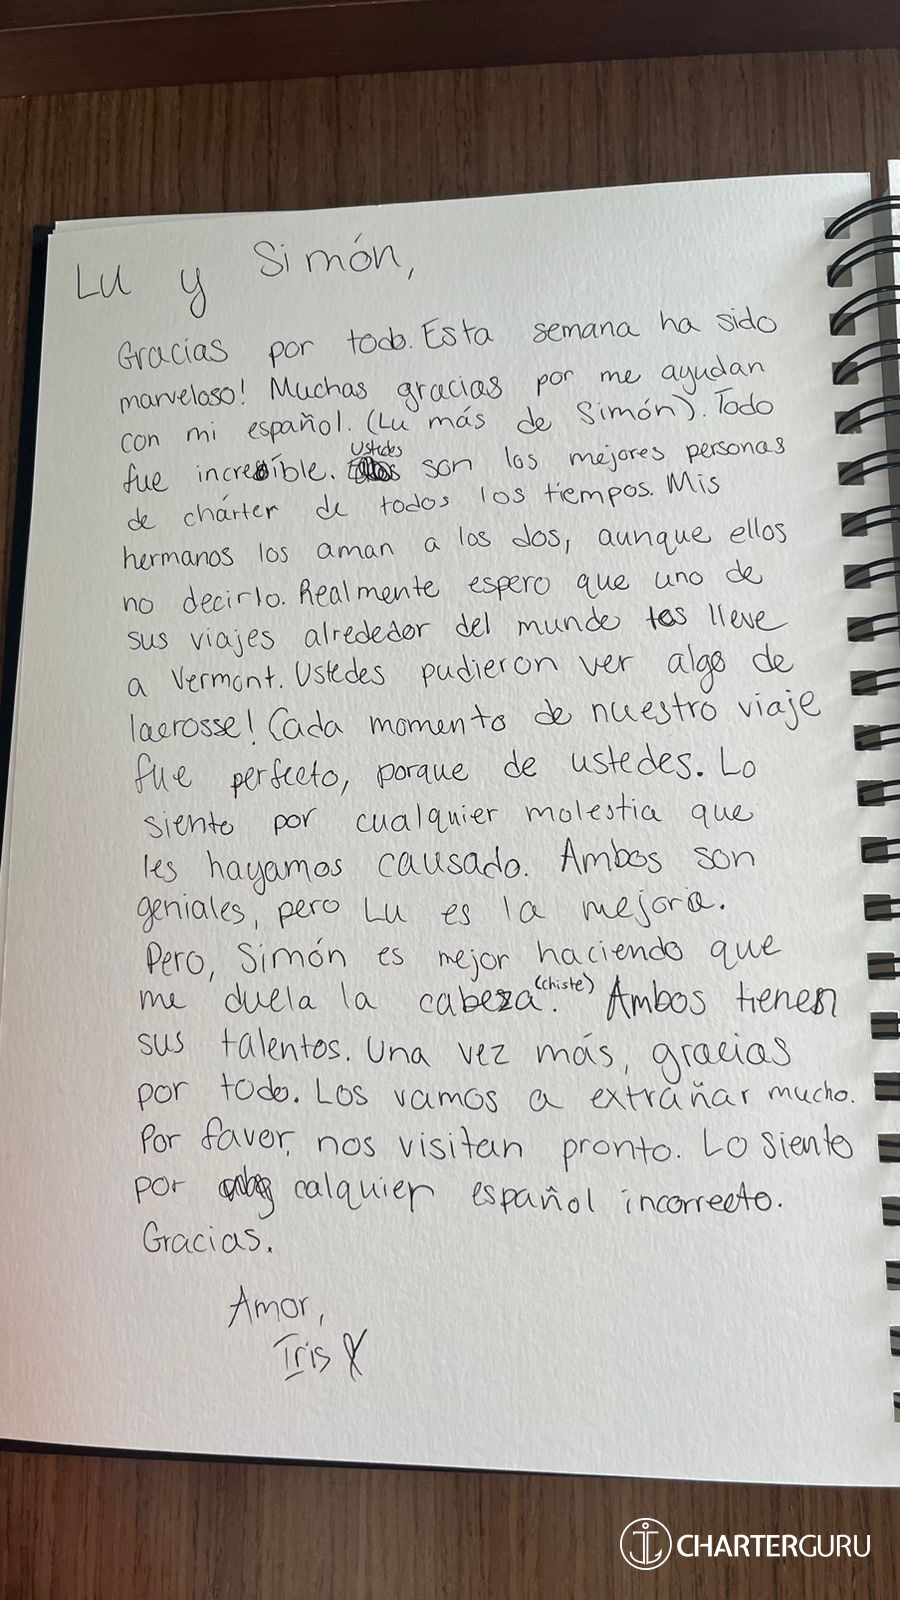 Lu y Simón,
Gracias por todo. Esta semana ha sido
marveloso! Muchas gracias por me ayudan
con mi español. (Lu más de Simón). Todo
fue increíble. Ustedes son las mejores personas
de chárter de todos los tiempos. Mis
hermanos los aman a los dos, aunque ellos
no decirlo. Realmente espero que uno de
sus viajes alrededor del mundo los lleve
a Vermont. Ustedes pudieron ver algo de
lacrosse! Cada momento de nuestro viaje
fue perfecto, porque de ustedes. Lo
siento por cualquier molestia que
les hayamos causado. Ambos son
geniales, pero Lu es la mejora.
Pero, Simón es mejor haciendo que
me duela la cabeza. (chiste) Ambos tienen
sus talentos. Una vez más, gracias
por todo. Los vamos a extrañar mucho.
Por favor, nos visitan pronto. Lo siento
por calquier español incorrecto.
Gracias.
Amor,
Iris
CHARTERGURU